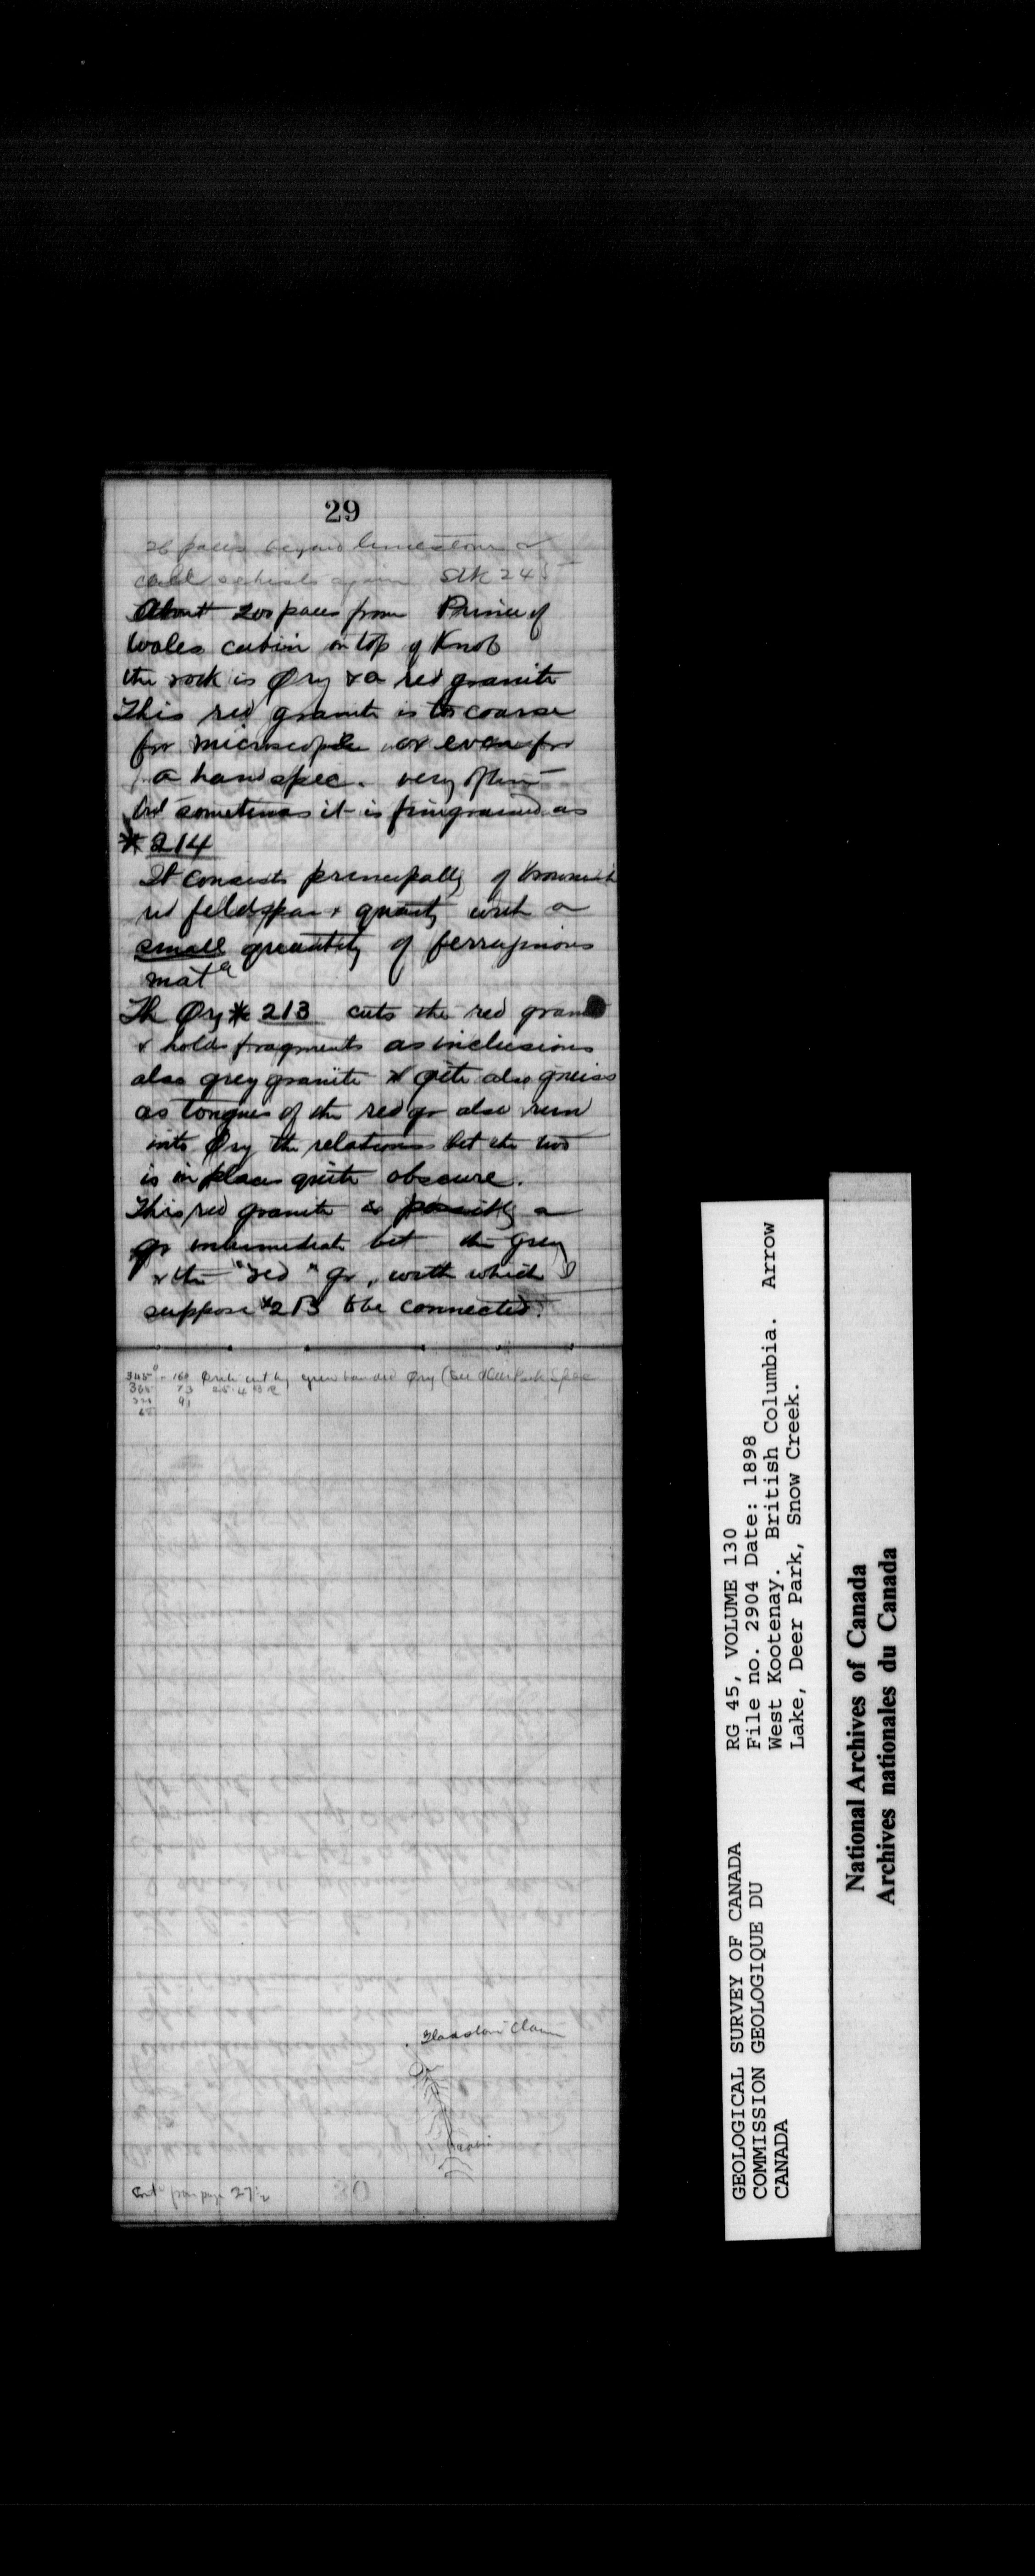 29
26 paces beyond limestone &
calc schists again Stk 245
About 200 paces from Prince of
Wales cabin on top of Knob
the rock is Øry & a red granite
This red granite is too coarse
for microscope or even for
a hand spec. very often
but sometimes it is finegrained as
* 214
It consists principally of brownish
red feldspar & quartz with a
small quantity of ferruginous
mat
The Øry * 213 cuts the red
& holds fragments as inclusions
also grey granite & also gneiss
as tongues of the red gr also run
into Øry the relations bet the two
is in places quite obscure.
This red granite is possibly a
gr intermediate bet the grey
& the "red" gr, with which I
suppose *213 to be connected.
345° - 160 cut by green banded Øry (See Deer Park Spec
365 73
91
65
Gladstone Claim
Cabin
Cont from page 27½
30
RG 45, VOLUME 130
File no. 2904 Date: 1898
West Kootenay. British Columbia. Arrow
Lake, Deer Park, Snow Creek.
GEOLOGICAL SURVEY OF CANADA
COMMISSION GEOLOGIQUE DU
CANADA
National Archives of Canada
Archives nationales du Canada